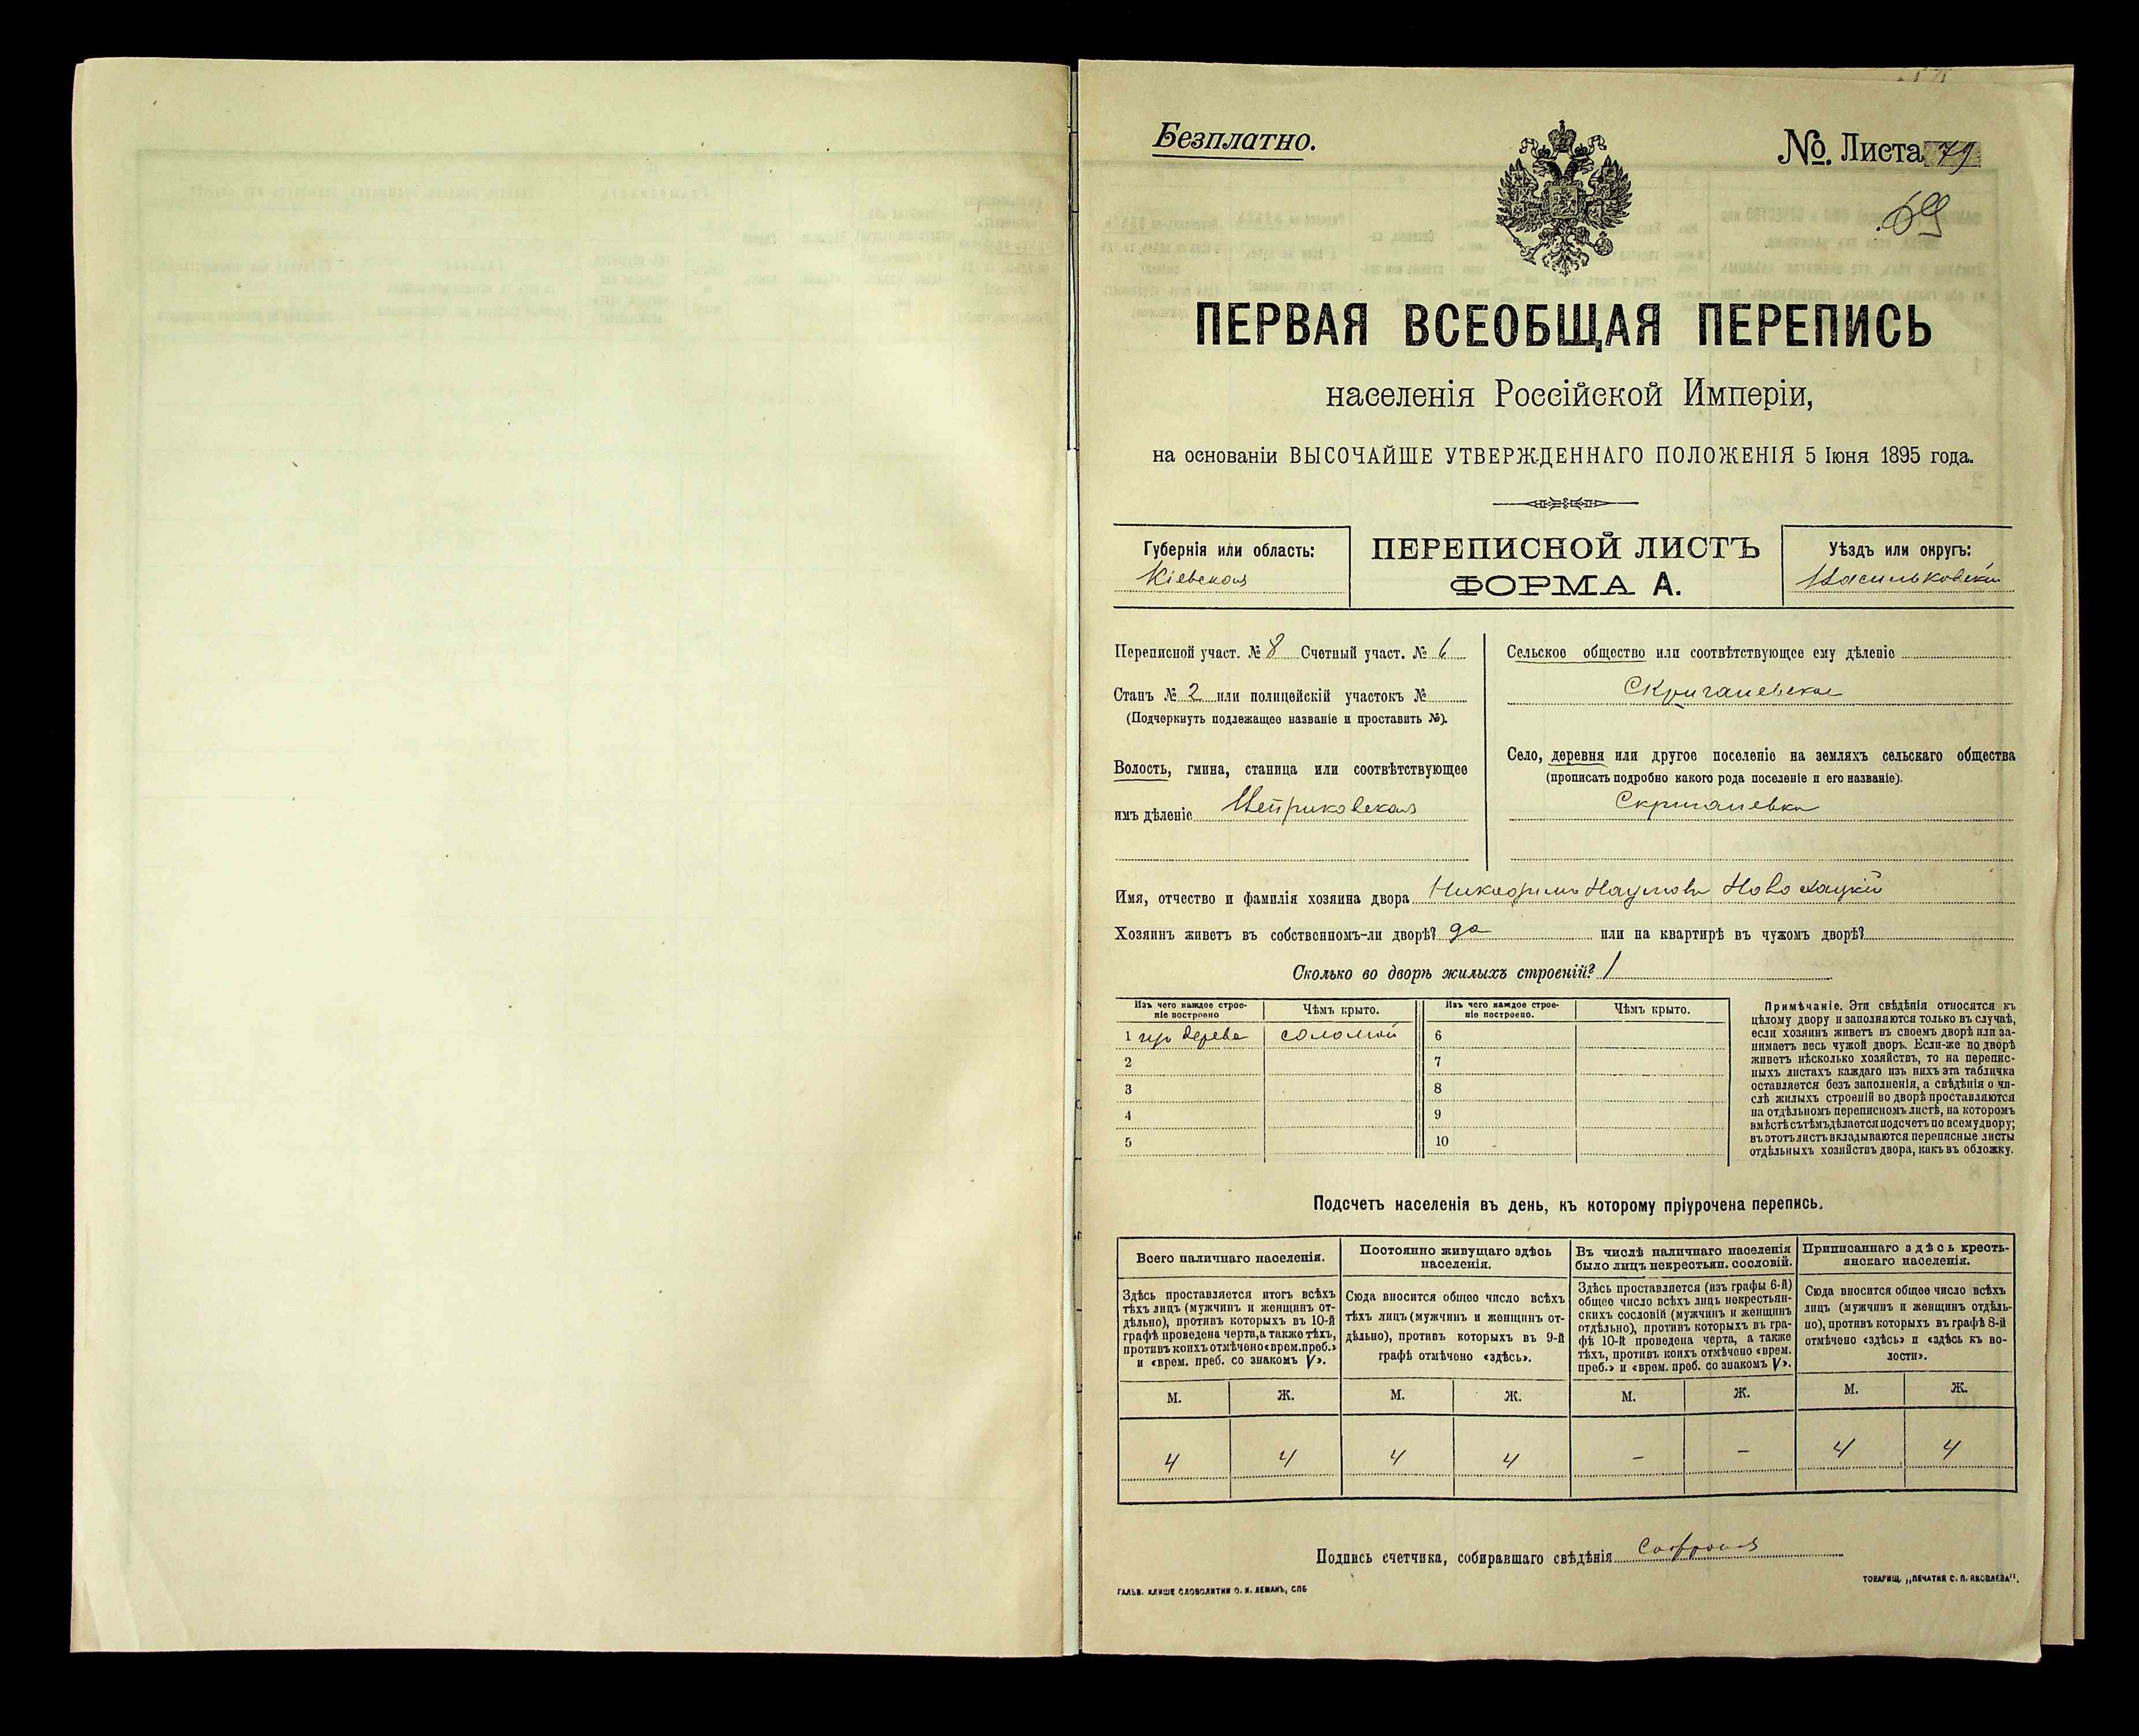 Безплатно.
№. Листа 79
69
ПЕРВАЯ ВСЕОБЩАЯ ПЕРЕПИСЬ
населенія Россійской Имперіи,
на основаніи ВЫСОЧАЙШЕ УТВЕРЖДЕННАГО ПОЛОЖЕНІЯ 5 Іюня 1895 года.
Губернія или область:
Кіевская
ПЕРЕПИСНОЙ ЛИСТЪ
ФОРМА А.
Уѣздъ или округъ:
Васильковскій
Переписной участ. № 8 Счетный участ. № 6
Станъ № 2 или полицейскій участокъ №
(Подчеркнуть подлежащее названіе и проставить №).
Волость, гмина, станица или соотвѣтствующее
имъ дѣленіе
Сельское общество или соотвѣтствующее ему дѣленіе
Скригалевское
Село, деревня или другое поселеніе на земляхъ сельскаго общества
(прописать подробно какого рода поселеніе и его названіе).
Скригалевка
Имя, отчество и фамилія хозяина двора Никодимъ Наумовъ
Хозяинъ живетъ въ собственномъ-ли дворѣ? да или на квартирѣ въ чужомъ дворѣ?
Сколько во дворѣ жилыхъ строеній? 1
Изъ чего каждое строе-
ніе построено
Чѣмъ крыто.
Изъ чего каждое строе-
ніе построено.
Чѣмъ крыто.
1 изъ дерева соломой 6
2 7
3 8
4 9
5 10
Примѣчаніе. Эти свѣдѣнія относятся къ
цѣлому двору и заполняются только въ случаѣ,
если хозяинъ живетъ въ своемъ дворѣ или за-
нимаетъ весь чужой дворъ. Если-же во дворѣ
живетъ нѣсколько хозяйствъ, то на перепис-
ныхъ листахъ каждаго изъ нихъ эта табличка
оставляется безъ заполненія, а свѣдѣнія о чи-
слѣ жилыхъ строеній во дворѣ проставляются
на отдѣльномъ переписномъ листѣ, на которомъ
вмѣстѣ съ тѣмъ дѣлается подсчетъ по всему двору;
въ этотъ листъ вкладываются переписные листы
отдѣльныхъ хозяйствъ двора, какъ въ обложку.
Подсчетъ населенія въ день, къ которому пріурочена перепись.
Всего наличнаго населенія.
Здѣсь проставляется итогъ всѣхъ
тѣхъ лицъ (мужчинъ и женщинъ от-
дѣльно), противъ которыхъ въ 10-й
графѣ проведена черта, а также тѣхъ,
противъ коихъ отмѣчено «врем. преб.»
и «врем. преб. со знакомъ V».
Постоянно живущаго здѣсь
населенія.
Сюда вносится общее число всѣхъ
тѣхъ лицъ (мужчинъ и женщинъ от-
дѣльно), противъ которыхъ въ 9-й
графѣ отмѣчено «здѣсь».
Въ числѣ наличнаго населенія
было лицъ некрестьян. сословій.
Здѣсь проставляется (изъ графы 6-й)
общее число всѣхъ лицъ некрестьян-
скихъ сословій (мужчинъ и женщинъ
отдѣльно), противъ которыхъ въ гра-
фѣ 10-й проведена черта, а также
тѣхъ, противъ коихъ отмѣчено «врем.
преб.» и «врем. преб. со знакомъ V».
Приписаннаго здѣсь кресть-
янскаго населенія.
Сюда вносится общее число всѣхъ
лицъ (мужчинъ и женщинъ отдѣль-
но), противъ которыхъ въ графѣ 8-й
отмѣчено «здѣсь» и «здѣсь къ во-
лости».
М. Ж. М. Ж. М. Ж. М. Ж.
4 4 4 4 – – 4 4
Подпись счетчика, собиравшаго свѣдѣнія
ГАЛЬВ. КЛИШЕ СЛОВОЛИТНИ О. И. ЛЕМАНЪ, СПБ
ТОВАРИЩ. „ПЕЧАТНЯ С. П. ЯКОВЛЕВА“.